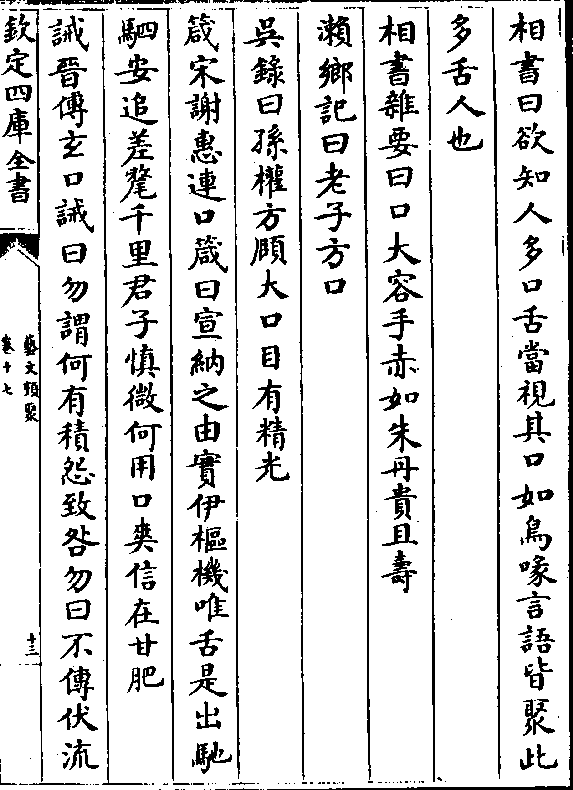 相書曰欲知人多口舌當視其口如鳥喙言語皆聚此
多舌人也
相書雜要曰口大容手赤如朱丹貴且壽
瀨鄉記曰老子方口
吳錄曰孫權方頤大口目有精光
箴宋謝惠連口箴曰宣納之由實伊樞機唯舌是出馳
駟安追差毫千里君子慎微何用口爽信在甘肥
誡晉傅玄口誡曰勿謂何有積怨致咎勿曰不傳伏流
欽定四庫全書
藝文類聚
卷十七
十三